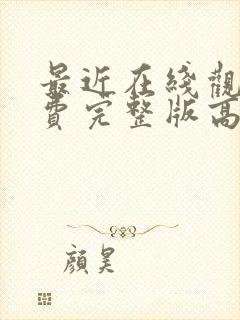 最近在线觀
費完整版高
顔昊